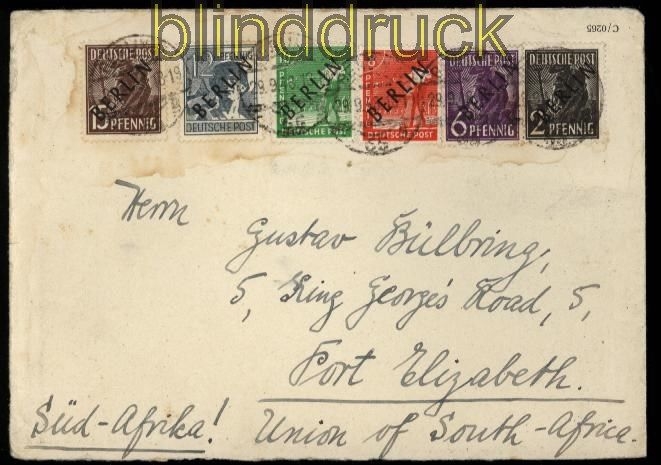 blinddruck
C/0265
DEUTSCHE POST
BERLIN
15 PFENNIG
12
BERLIN
DEUTSCHE POST
BERLIN
DEUTSCHE POST
8
BERLIN
DEUTSCHE POST
DEUTSCHE POST
BERLIN
6 PFENNIG
DEUTSCHE POST
BERLIN
2 PFENNIG
Herrn
Gustav Bülbring,
5, King George's Road, 5,
Port Elizabeth.
Süd-Afrika! Union of South-Africa.